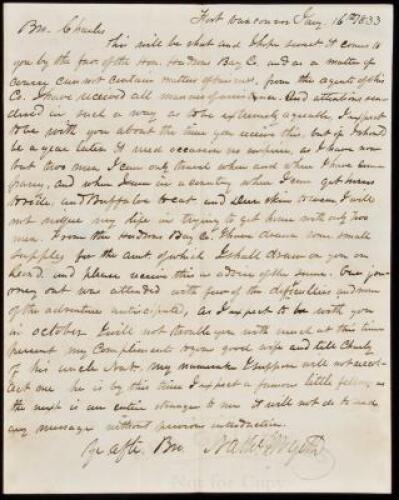 Fort Vancouver Jany. 16th 1833
Bro. Charles
This will be short and I hope sweet It comes to
you by the favr of the Hon. Hudsons Bay Co. and as a matter of
course can not contain matters of business, from the agents of this
Co. I have received all manner of assistance. And attentions ren-
dered in such a way as to be extremely agreable. I expect
to be with you about the time you receive this, but if I should
be a year later it need occasion no surprise, as I have now
but two men, I can only travel when and where I have com-
pany, and when I am in a country where I can get horses
to ride, and Buffaloe to eat and Deer skin to wear I will
not risque my life in trying to get home with only two
men. From the Hudsons Bay Co. I have drawn some small
supplies for the amt. of which I shall draw on you on
hand, and please receive this as advice of the same. Our jour-
ney out was attended with few of the difficulties and none
of the adventure anticipated, as I expect to be with you
in october I will not trouble you with much at this time
present my Compliments to your good wife and tell Charly
of his uncle Nat. My namesake I suppose will not recol-
lect me he is by this time I expect a famous little fellow, as
the next is an entire stranger to me it will not do to send
any message without previous introduction.
Yr afte. Bro. Nathl J Wyeth
Not for Copy